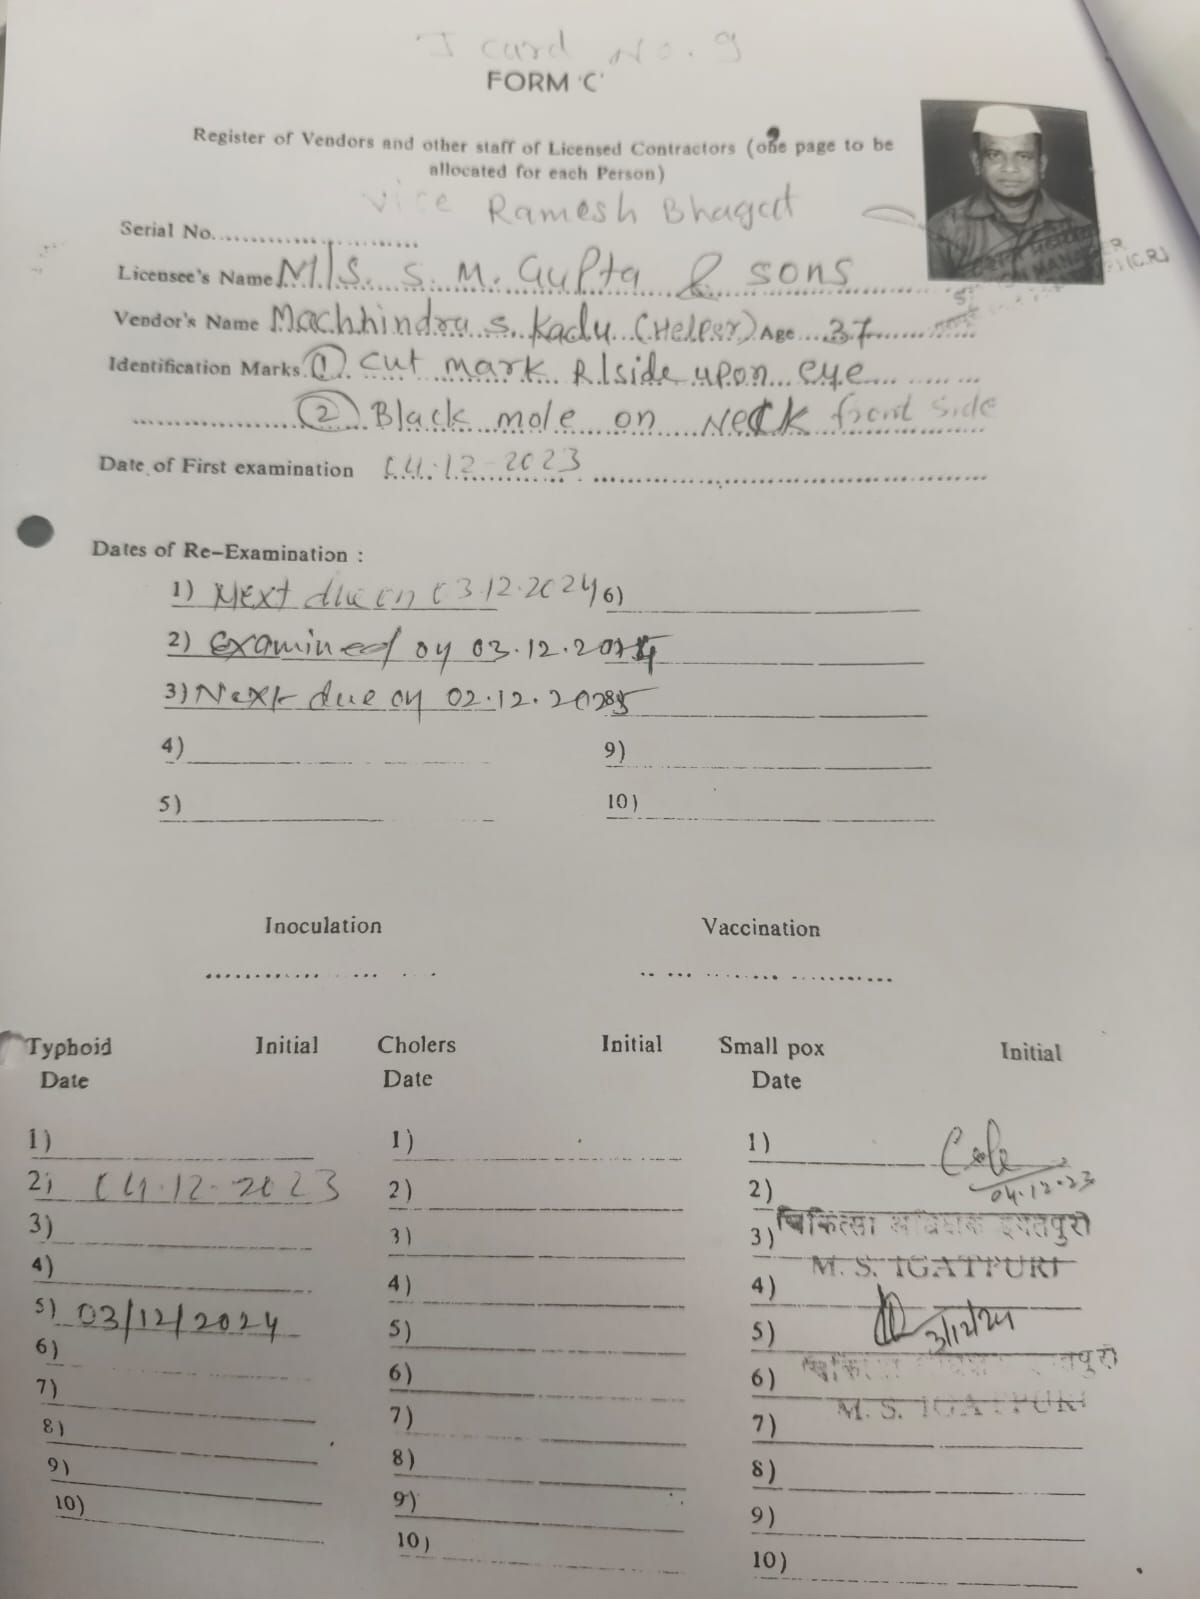 I card No. 9
FORM 'C'
Register of Vendors and other staff of Licensed Contractors (one page to be
allocated for each Person)
vice Ramesh Bhagat
Serial No.
Licensee's Name M/S. S. M. Gupta & sons
Vendor's Name Machhindra s. Kadu (Helper) Age 37
Identification Marks ① cut mark R/side upon eye
② Black mole on Neck front side
Date of First examination 04.12-2023
Dates of Re-Examination :
1) Next due on 03.12.2024 6)
2) Examined on 03.12.2024
3) Next due on 02.12.2025
4) 9)
5) 10)
Inoculation Vaccination
Typhoid Initial Cholers Initial Small pox Initial
Date Date Date
1) 1) 1)
2) 04.12.2023 2) 2) 04.12.23
3) 3) 3) चिकित्सा इगतपुरी
M. S. IGATPURI
4) 4) 4)
5) 03/12/2024 5) 5) 3/12/24
6) 6) 6)
M. S. IGATPURI
7) 7) 7)
8) 8) 8)
9) 9) 9)
10) 10) 10)